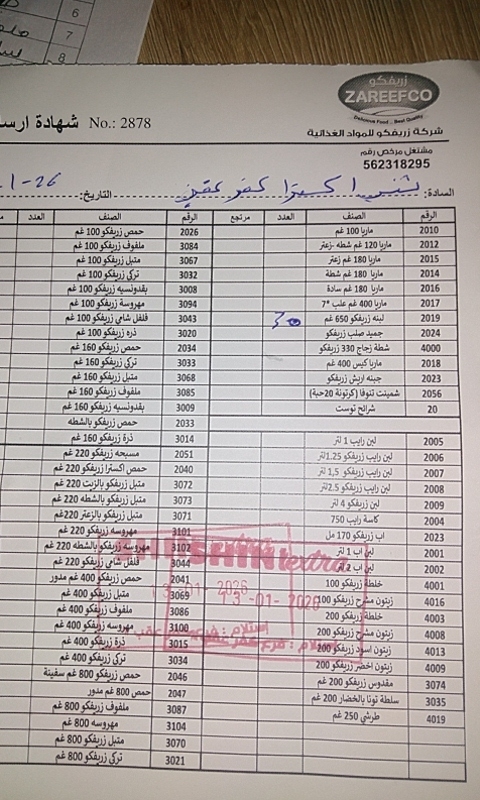 6
7
8
زريفكو
ZAREEFCO
Delicious Food .. Best Quality
شركة زريفكو للمواد الغذائية
شهادة ارسا
No.: 2878
مشتغل مرخص رقم
562318295
السادة: اكسترا كفر عقب
التاريخ: 1-26
الرقم الصنف العدد مرتجع الرقم الصنف العدد
2010 ماربا 100 غم 2026 حمص زريفكو 100 غم
2012 ماربا 120 غم شطه -زعتر 3084 ملفوف زريفكو 100 غم
2015 ماربا 180 غم زعتر 3067 متبل زريفكو 100 غم
2014 ماربا 180 غم شطة 3032 تركي زريفكو 100 غم
2016 ماربا 180 غم سادة 3008 بقدونسيه زريفكو 100 غم
2017 ماربا 400 غم علب *7 3094 مهروسة زريفكو 100 غم
2019 لبنه زريفكو 650 غم 30 3043 فلفل شامي زريفكو 100 غم
2024 جميد صلب زريفكو 3020 ذره زريفكو 100 غم
4000 شطة زجاج 330 زريفكو 2034 حمص زريفكو 160 غم
2018 ماربا كيس 400 غم 3033 تركي زريفكو 160 غم
2023 جبنه اريش زريفكو 3068 متبل زريفكو 160 غم
2056 شمينت تنوفا (كرتونة 20حبة) 3085 ملفوف زريفكو 160 غم
20 شرائح توست 3009 بقدونسيه زريفكو 160 غم
2033 حمص زريفكو بالشطه
2005 لبن رايب 1 لتر 3014 ذرة زريفكو 160 غم
2006 لبن رايب زريفكو 1.25لتر 2051 مسبحه زريفكو 220 غم
2007 لبن رايب زريفكو 1,5 لتر 2040 حمص اكسترا زريفكو 220 غم
2008 لبن رايب زريفكو 2.5لتر 3072 متبل زريفكو بالزيت 220 غم
2009 لبن زريفكو 4 لتر 3073 متبل زريفكو بالشطه 220 غم
2004 كاسة رايب 750 3071 متبل زريفكو بالزعتر 220 غم
2023 اب زريفكو 170 مل 3101 مهروسه زريفكو 220 غم
2001 لبن اب 1 لتر 3102 مهروسه زريفكو بالشطه 220 غم
2002 لبن اب 2 لتر 3044 فلفل شامي زريفكو 220 غم
4001 خلطة زريفكو 100 2041 حمص زريفكو 400 غم مدور
4016 زيتون مشرح زريفكو 100 3069 متبل زريفكو 400 غم
4003 خلطة زريفكو 200 3086 ملفوف زريفكو 400 غم
4008 زيتون مشرح زريفكو 200 3100 مهروسه زريفكو 400 غم
4013 زيتون اسود زريفكو 200 3015 ذرة زريفكو 400 غم
4009 زيتون اخضر زريفكو 200 3034 تركي زريفكو 400 غم
3074 مقدوس زريفكو 200 غم 2046 حمص زريفكو 800 غم سفينة
3035 سلطة تونا بالخضار 200 غم 2047 حمص 800 غم مدور
4019 طرشي 250 غم 3087 ملفوف زريفكو 800 غم
3104 مهروسه 800 غم
3070 متبل زريفكو 800 غم
3021 تركي زريفكو 800 غم
SHINSHIN extra
13-01-2026
استلام : فرع كفر عقب